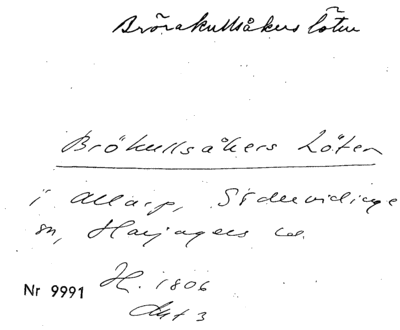 Brörakullsåkers löten
Brökullsåkers Löten
i Allarp, Södervidinge
sn, Harjagers hd.
Nr 9991 H. 1806
Akt 3